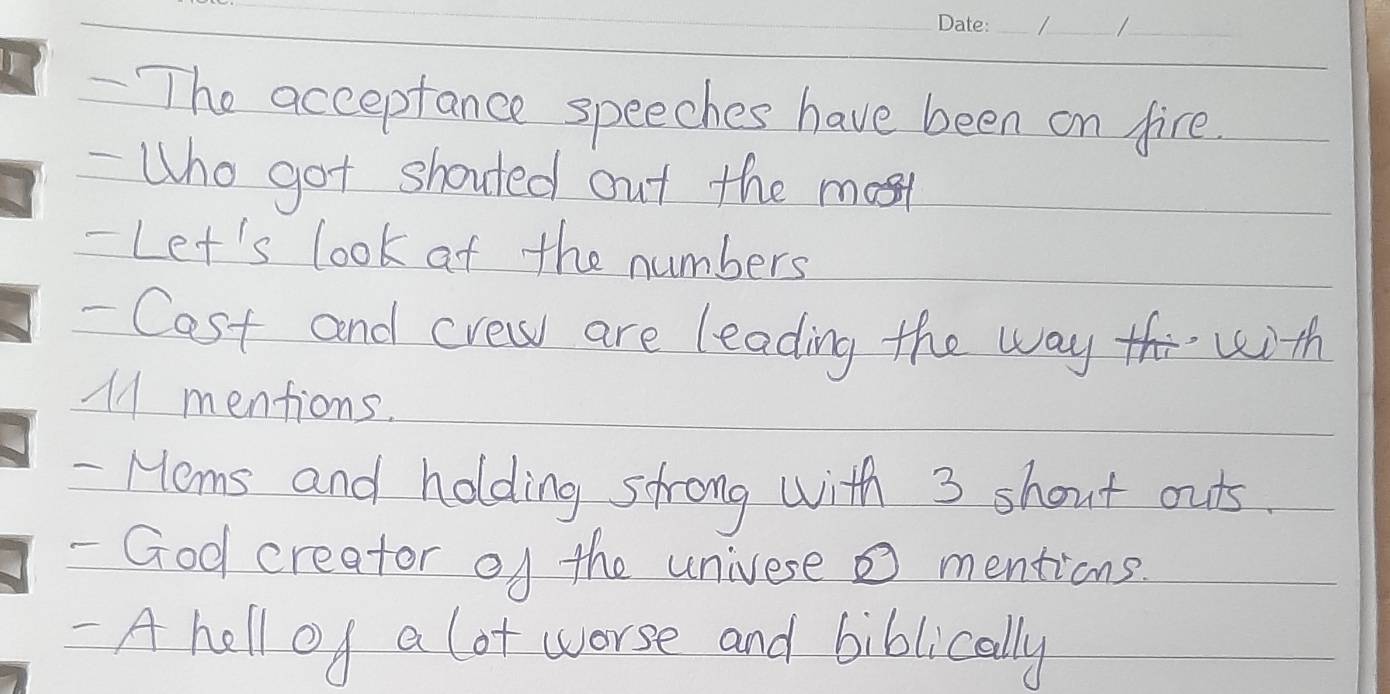 Date: / /
- The acceptance speeches have been on fire.
- Who got shouted out the most
- Let's look at the numbers
- Cast and crew are leading the way thi with
11 mentions.
- Moms and holding strong with 3 shout outs.
- God creator of the univese 0 mentions.
- A hell of a lot worse and biblically